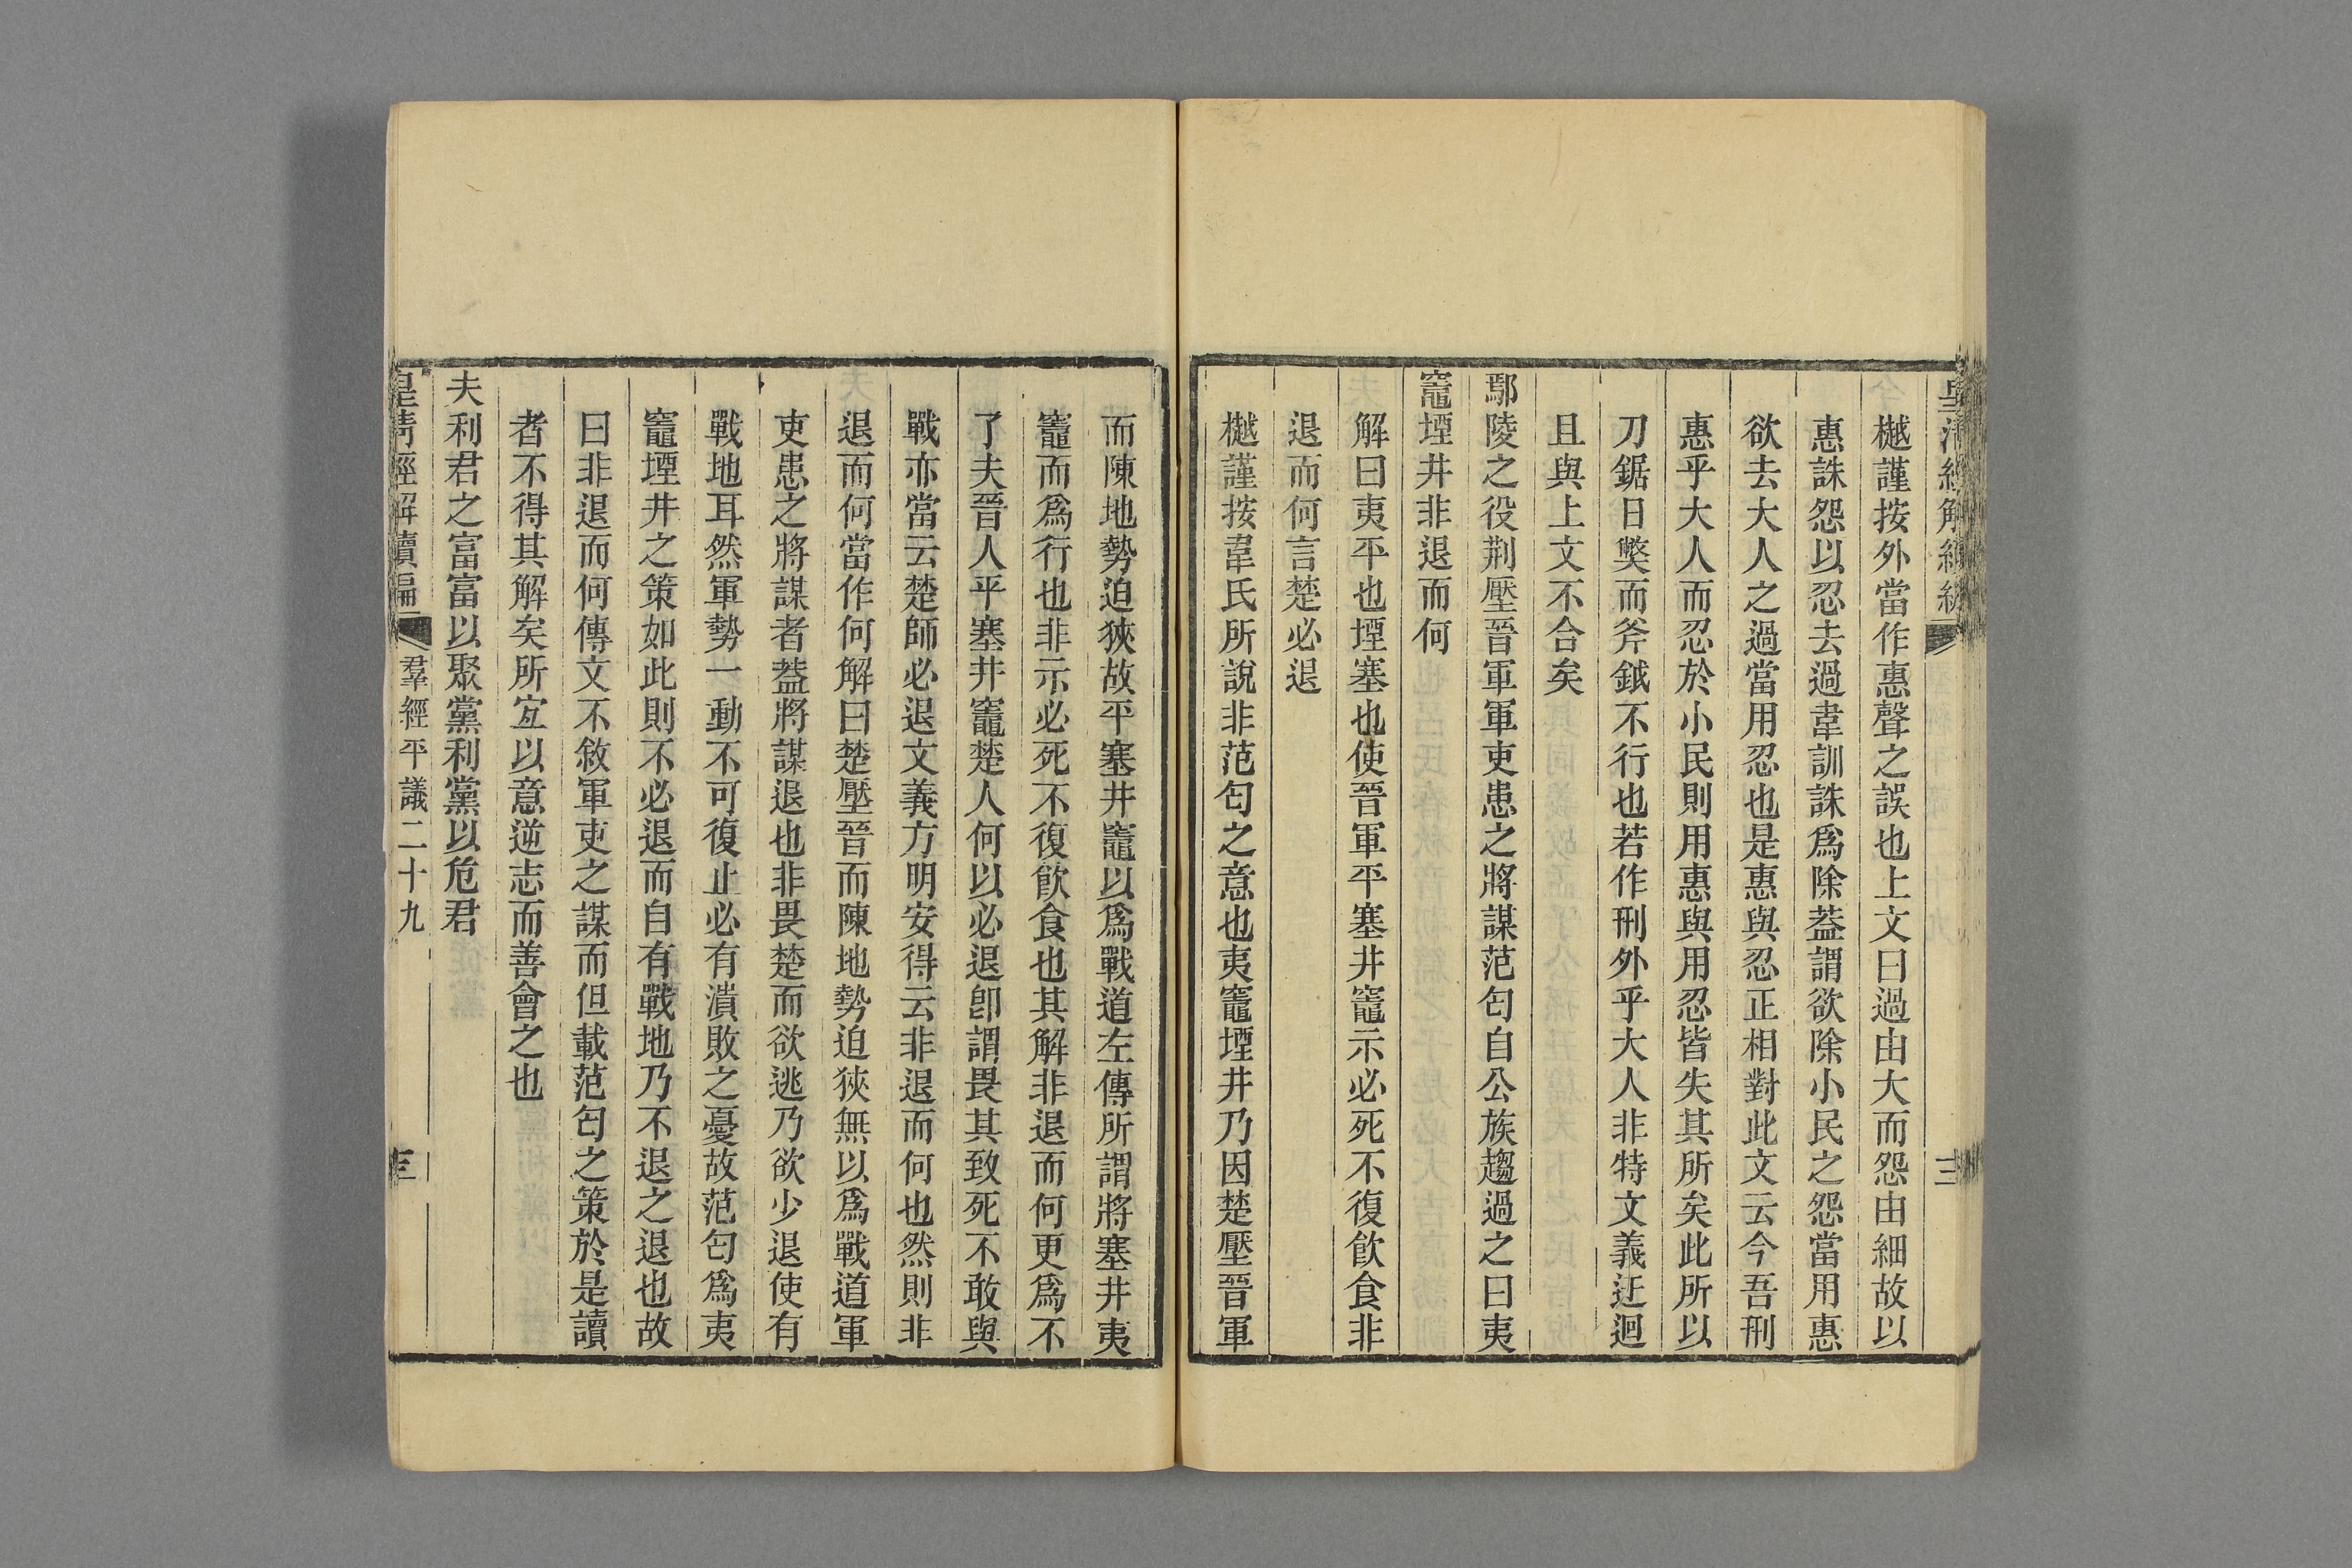 樾謹按外當作惠聲之誤也上文曰過由大而怨由細故以
惠誅怨以忍去過韋訓誅爲除葢謂欲除小民之怨當用惠
欲去大人之過當用忍也是惠與忍正相對此文云今吾刑
惠乎大人而忍於小民則用惠與用忍皆失其所矣此所以
刀鋸日獘而斧鉞不行也若作刑外乎大人非特文義迂迴
且與上文不合矣
鄢陵之役荆壓晉軍軍吏患之將謀范匄自公族趨過之曰夷
竈堙井非退而何
解曰夷平也堙塞也使晉軍平塞井竈示必死不復飮食非
退而何言楚必退
樾謹按韋氏所說非范匄之意也夷竈堙井乃因楚壓晉軍
而陳地勢迫狹故平塞井竈以爲戰道左傳所謂將塞井夷
竈而爲行也非示必死不復飮食也其解非退而何更爲不
了夫晉人平塞井竈楚人何以必退卽謂畏其致死不敢與
戰亦當云楚師必退文義方明安得云非退而何也然則非
退而何當作何解曰楚壓晉而陳地勢迫狹無以爲戰道軍
吏患之將謀者葢將謀退也非畏楚而欲逃乃欲少退使有
戰地耳然軍勢一動不可復止必有潰敗之憂故范匄爲夷
竈堙井之策如此則不必退而自有戰地乃不退之退也故
曰非退而何傳文不敘軍吏之謀而但載范匄之策於是讀
者不得其解矣所宐以意逆志而善會之也
夫利君之富富以聚黨利黨以危君
皇淸經解續編
羣經平議二十九
三